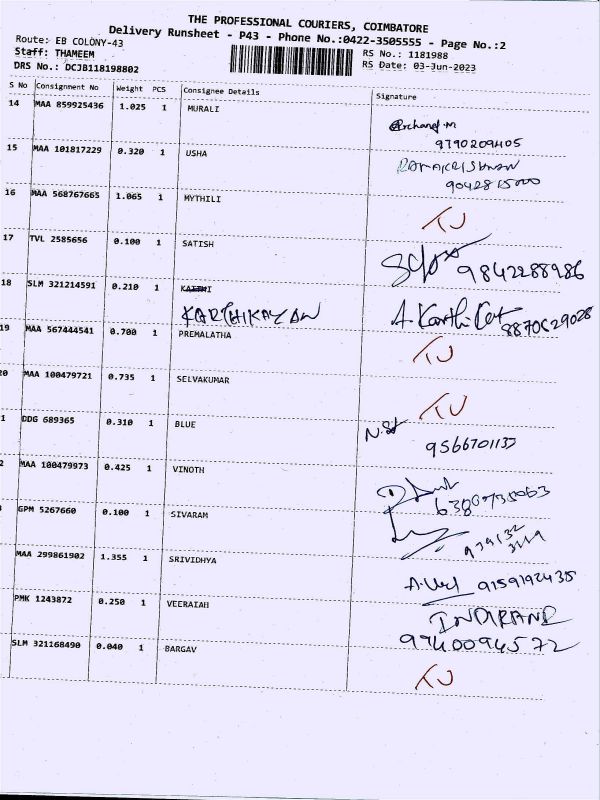 THE PROFESSIONAL COURIERS, COIMBATORE
Delivery Runsheet - P43 - Phone No.:0422-3505555 - Page No.:2
Route: EB COLONY-43
RS No. : 1181988
Staff: THAMEEM
RS Date: 03-Jun-2023
DRS No.: DCJB118198802
S No Consignment No Weight PCS Consignee Details Signature
14 MAA 859925436 1.025 1 MURALI
9790209405
15 MAA 101817229 0.320 1 USHA
RAMAKRISHNAN
9042815000
16 MAA 568767665 1.065 1 MYTHILI
TU
17 TVL 2585656 0.100 1 SATISH
9842288986
18 SLM 321214591 0.210 1
KARTHIKAYAN A Karthi 8870629028
19 MAA 567444541 0.700 1 PREMALATHA
TU
20 MAA 100479721 0.735 1 SELVAKUMAR
TU
1 DDG 689365 0.310 1 BLUE
9566701137
2 MAA 100479973 0.425 1 VINOTH
GPM 5267660 0.100 1 SIVARAM
MAA 299861902 1.355 1 SRIVIDHYA
9159192435
PMK 1243872 0.250 1 VEERAIAH
INDIRANI
9940094572
SLM 321168490 0.040 1 BARGAV
TU